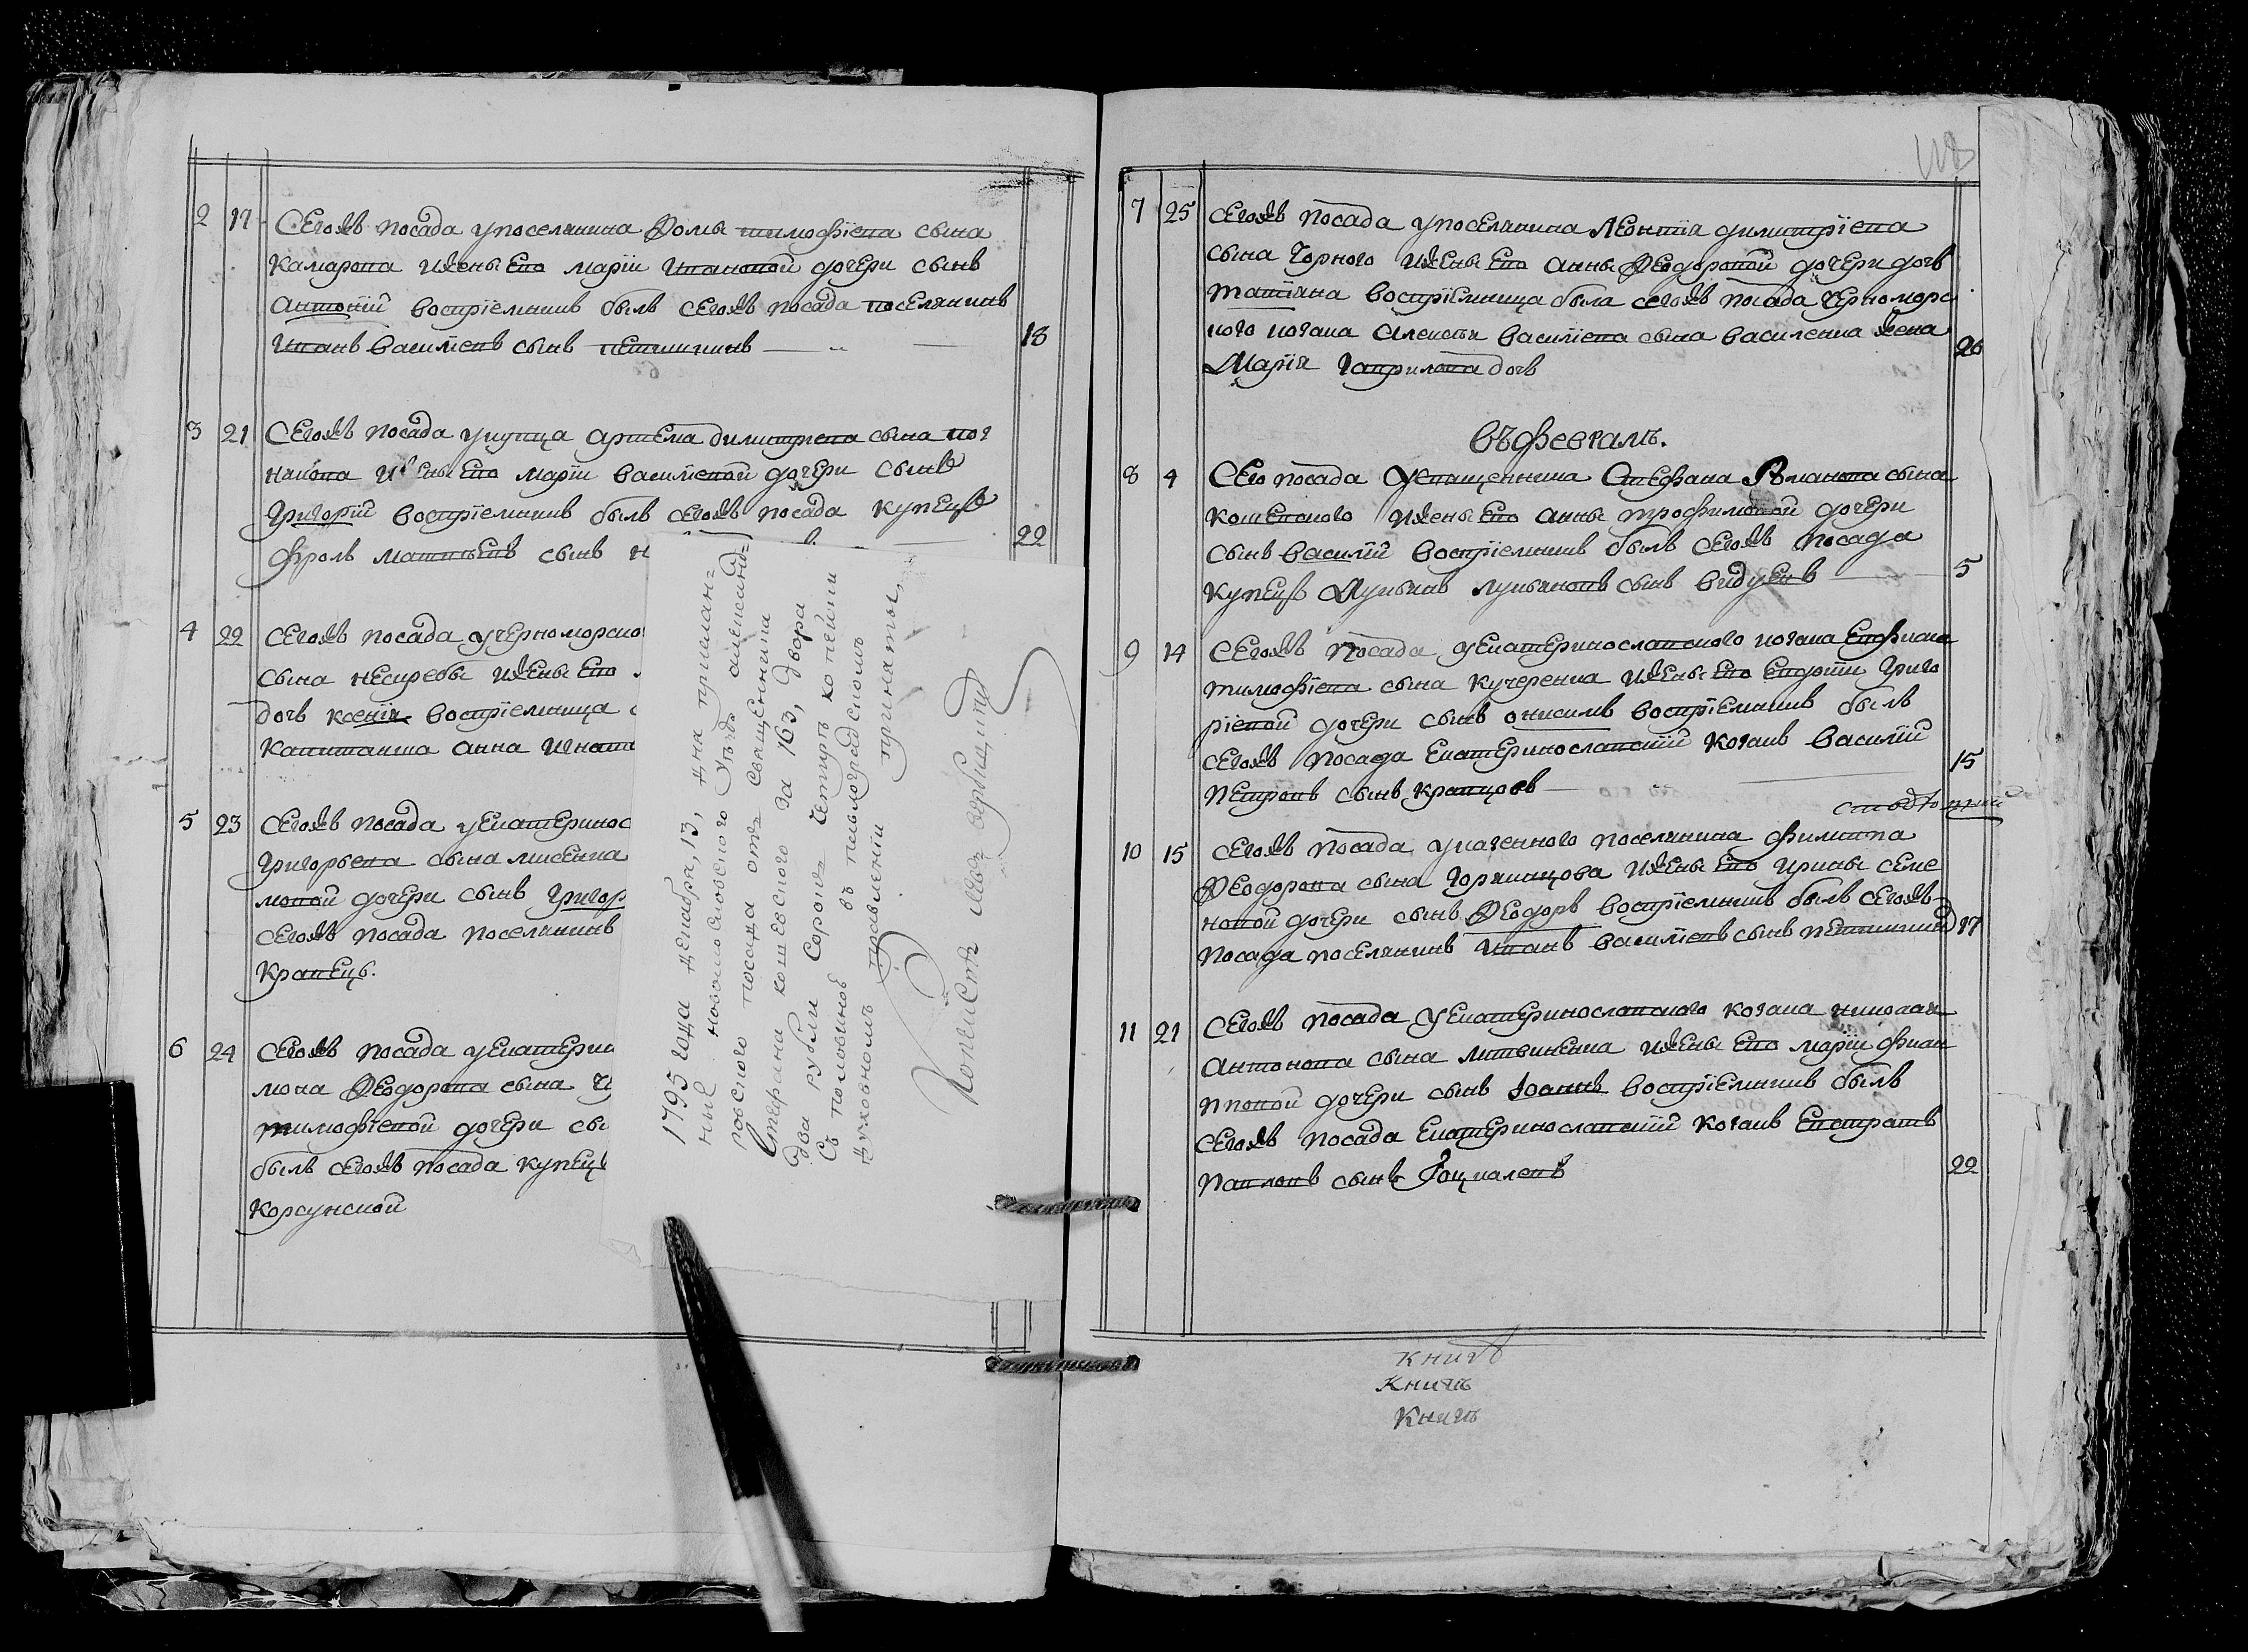 2 17 Сегожъ посада упоселянина Фомы тимофіева сына
Камарова ижены Его маріи Ивановой дочери сынъ
Антоній воспріемникъ былъ Сегожъ посада поселянинъ
Иванъ Василіевъ сынъ 18
3 21 Сегожъ посада укупца Артема димитріева сына
ижены Его маріи василіевой дочери сынъ
Григорій воспріемникъ былъ Сегожъ посада купецъ
Фролъ матвѣевъ сынъ 22
4 22 Сегожъ посада учерноморско
сына нескребы ижены Его
дочъ ксенія воспріемница
Капитанша анна Игнати
5 23 Сегожъ посада уЕкатеринос
Григорьева сына лисенка
мовой дочери сынъ Григор
Сегожъ посада поселянинъ
Кравецъ.
6 24 Сегожъ посада уЕкатерин
Феодорова сына
тимофіевой дочери сы
былъ сегожъ посада купец
Корсунской
1795 года декабря, 13, дня присилан=
ные новомосковского уѣзда александ=
ровского посада отъ священника
Стефана кошевского за 163, двора
два рубли сорокъ четыръ копейки
съ половиною въ павлоградскомъ
духовномъ правленіи приняты,
Копѣистъ
7 25 Сегожъ посада упоселянина Леонтія димитріева
сына Чорного ижены Его анны Феодоровой дочери дочъ
татіана воспріемница была сегожъ посада черноморс
кого козака Алексѣя василіева сына василенка жена
Марія Гаврилова дочъ 26
въ февралѣ.
8 4 Сего посада Священника Стефана Романова сына
Кошевского ижены Его анны трофимовой дочери
сынъ Василій воспріемникъ былъ Сегожъ посада
купецъ Лукьянъ лукьяновъ сынъ 5
9 14 Сегожъ посада уЕкатеринославского козака
тимофіева сына Кучеренка ижены Его Евдокіи Григо
ріевой дочери сынъ онисимъ воспріемникъ былъ
сегожъ посада Екатеринославскій козакъ василій
Петровъ сынъ Кравцовъ 15
10 15 Сегожъ посада указенного поселянина филиппа
Феодорова сына Горяинцова ижены Его Ирины Семе
новой дочери сынъ Феодоръ воспріемникъ былъ сегожъ
посада поселянинъ Иванъ василіевъ сынъ 17
11 21 Сегожъ посада уЕкатеринославского козака николая
антонова сына литвиненка ижены Его маріи
дочери сынъ Іоаннъ воспріемникъ былъ
сегожъ посада Екатеринославскій козакъ Евстратъ
Павловъ сынъ 22
книгъ
Книгъ
Книгъ